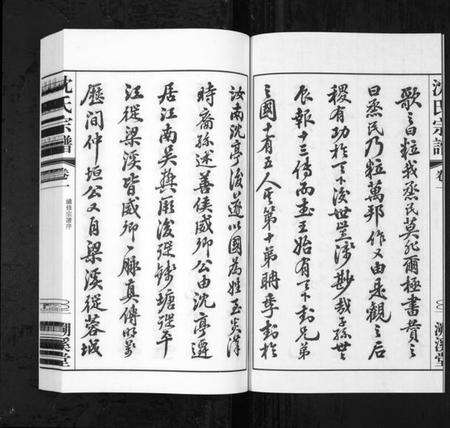 沈氏宗譜
卷一
歌之曰粒我烝民莫非爾極書贊之
曰烝民乃粒萬邦作乂由是觀之后
稷有功於天下後世豈淺尠哉子孫世世
食報十三傳而武王始有天下封兄弟
之國十有五人其第十弟聃季封於
汝南沈亭後遂以國為姓至炎漢
時裔孫述善侯威卿公由沈亭遷
居江南吳興厥後從錢塘從平
江從梁溪皆威卿一脈真傳明萬
歷間仲垣公又自梁溪從蓉城
沈氏宗譜
卷一
續修宗譜序
溯源堂